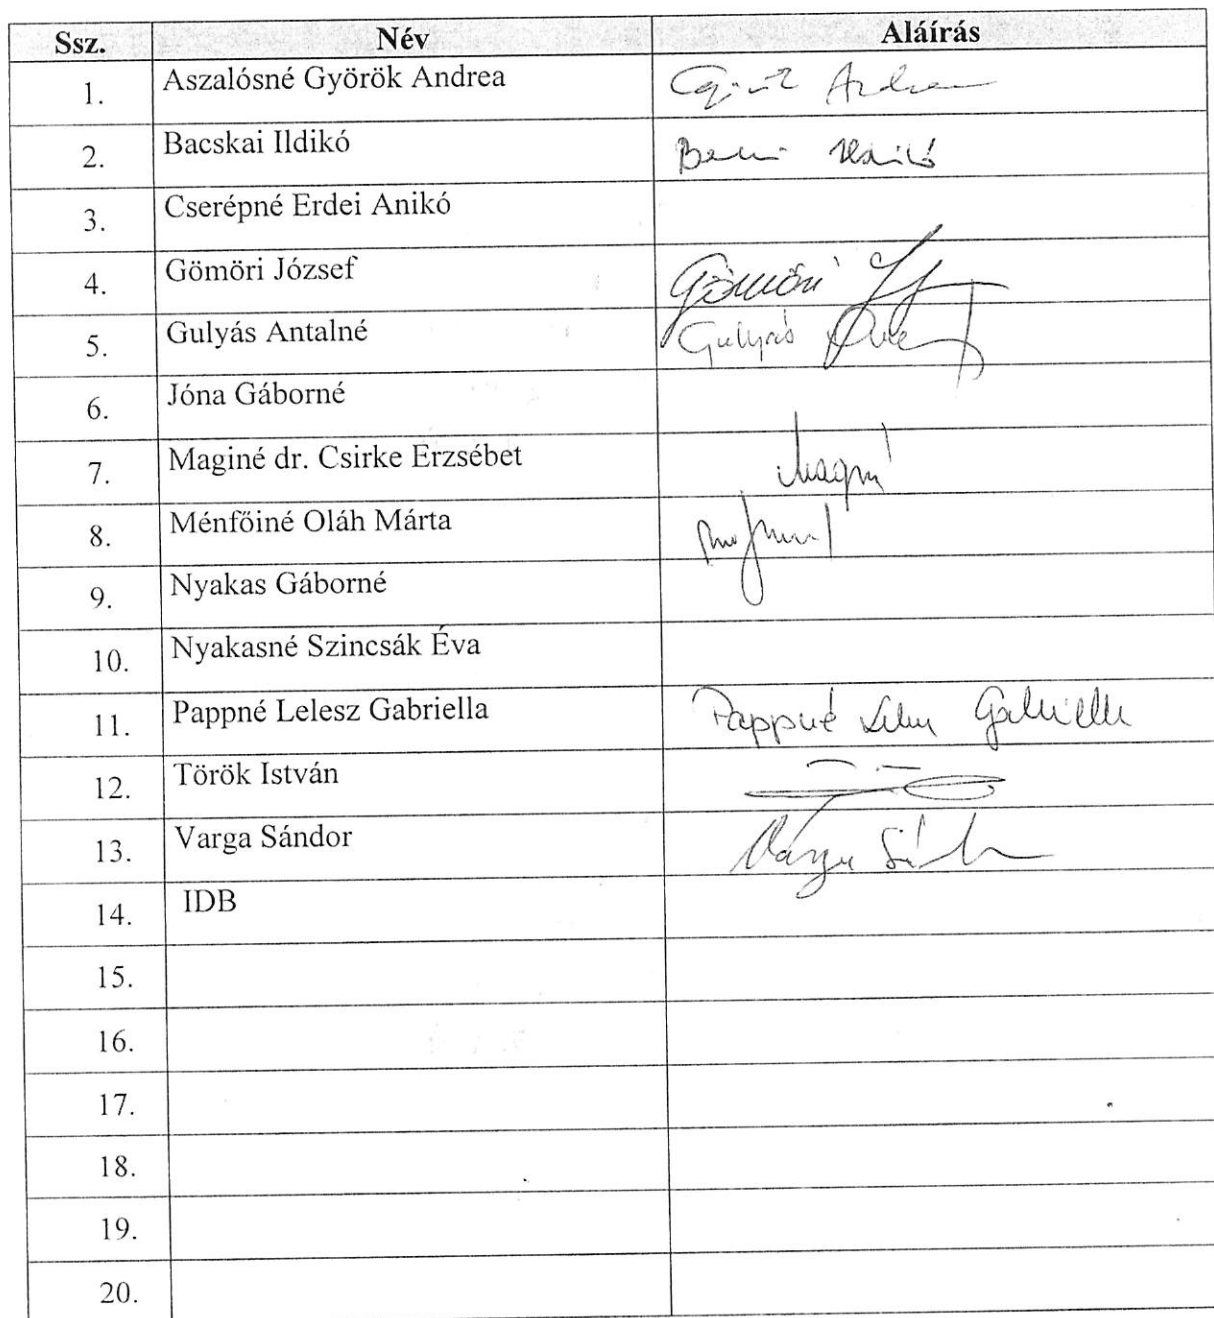 Ssz. Név Aláírás
1. Aszalósné Györök Andrea
2. Bacskai Ildikó Ildikó
3. Cserépné Erdei Anikó
4. Gömöri József Gömöri
5. Gulyás Antalné Gulyás
6. Jóna Gáborné
7. Maginé dr. Csirke Erzsébet
8. Ménfőiné Oláh Márta
9. Nyakas Gáborné
10. Nyakasné Szincsák Éva
11. Pappné Lelesz Gabriella Pappné
12. Török István
13. Varga Sándor Varga
14. IDB
15.
16.
17.
18.
19.
20.